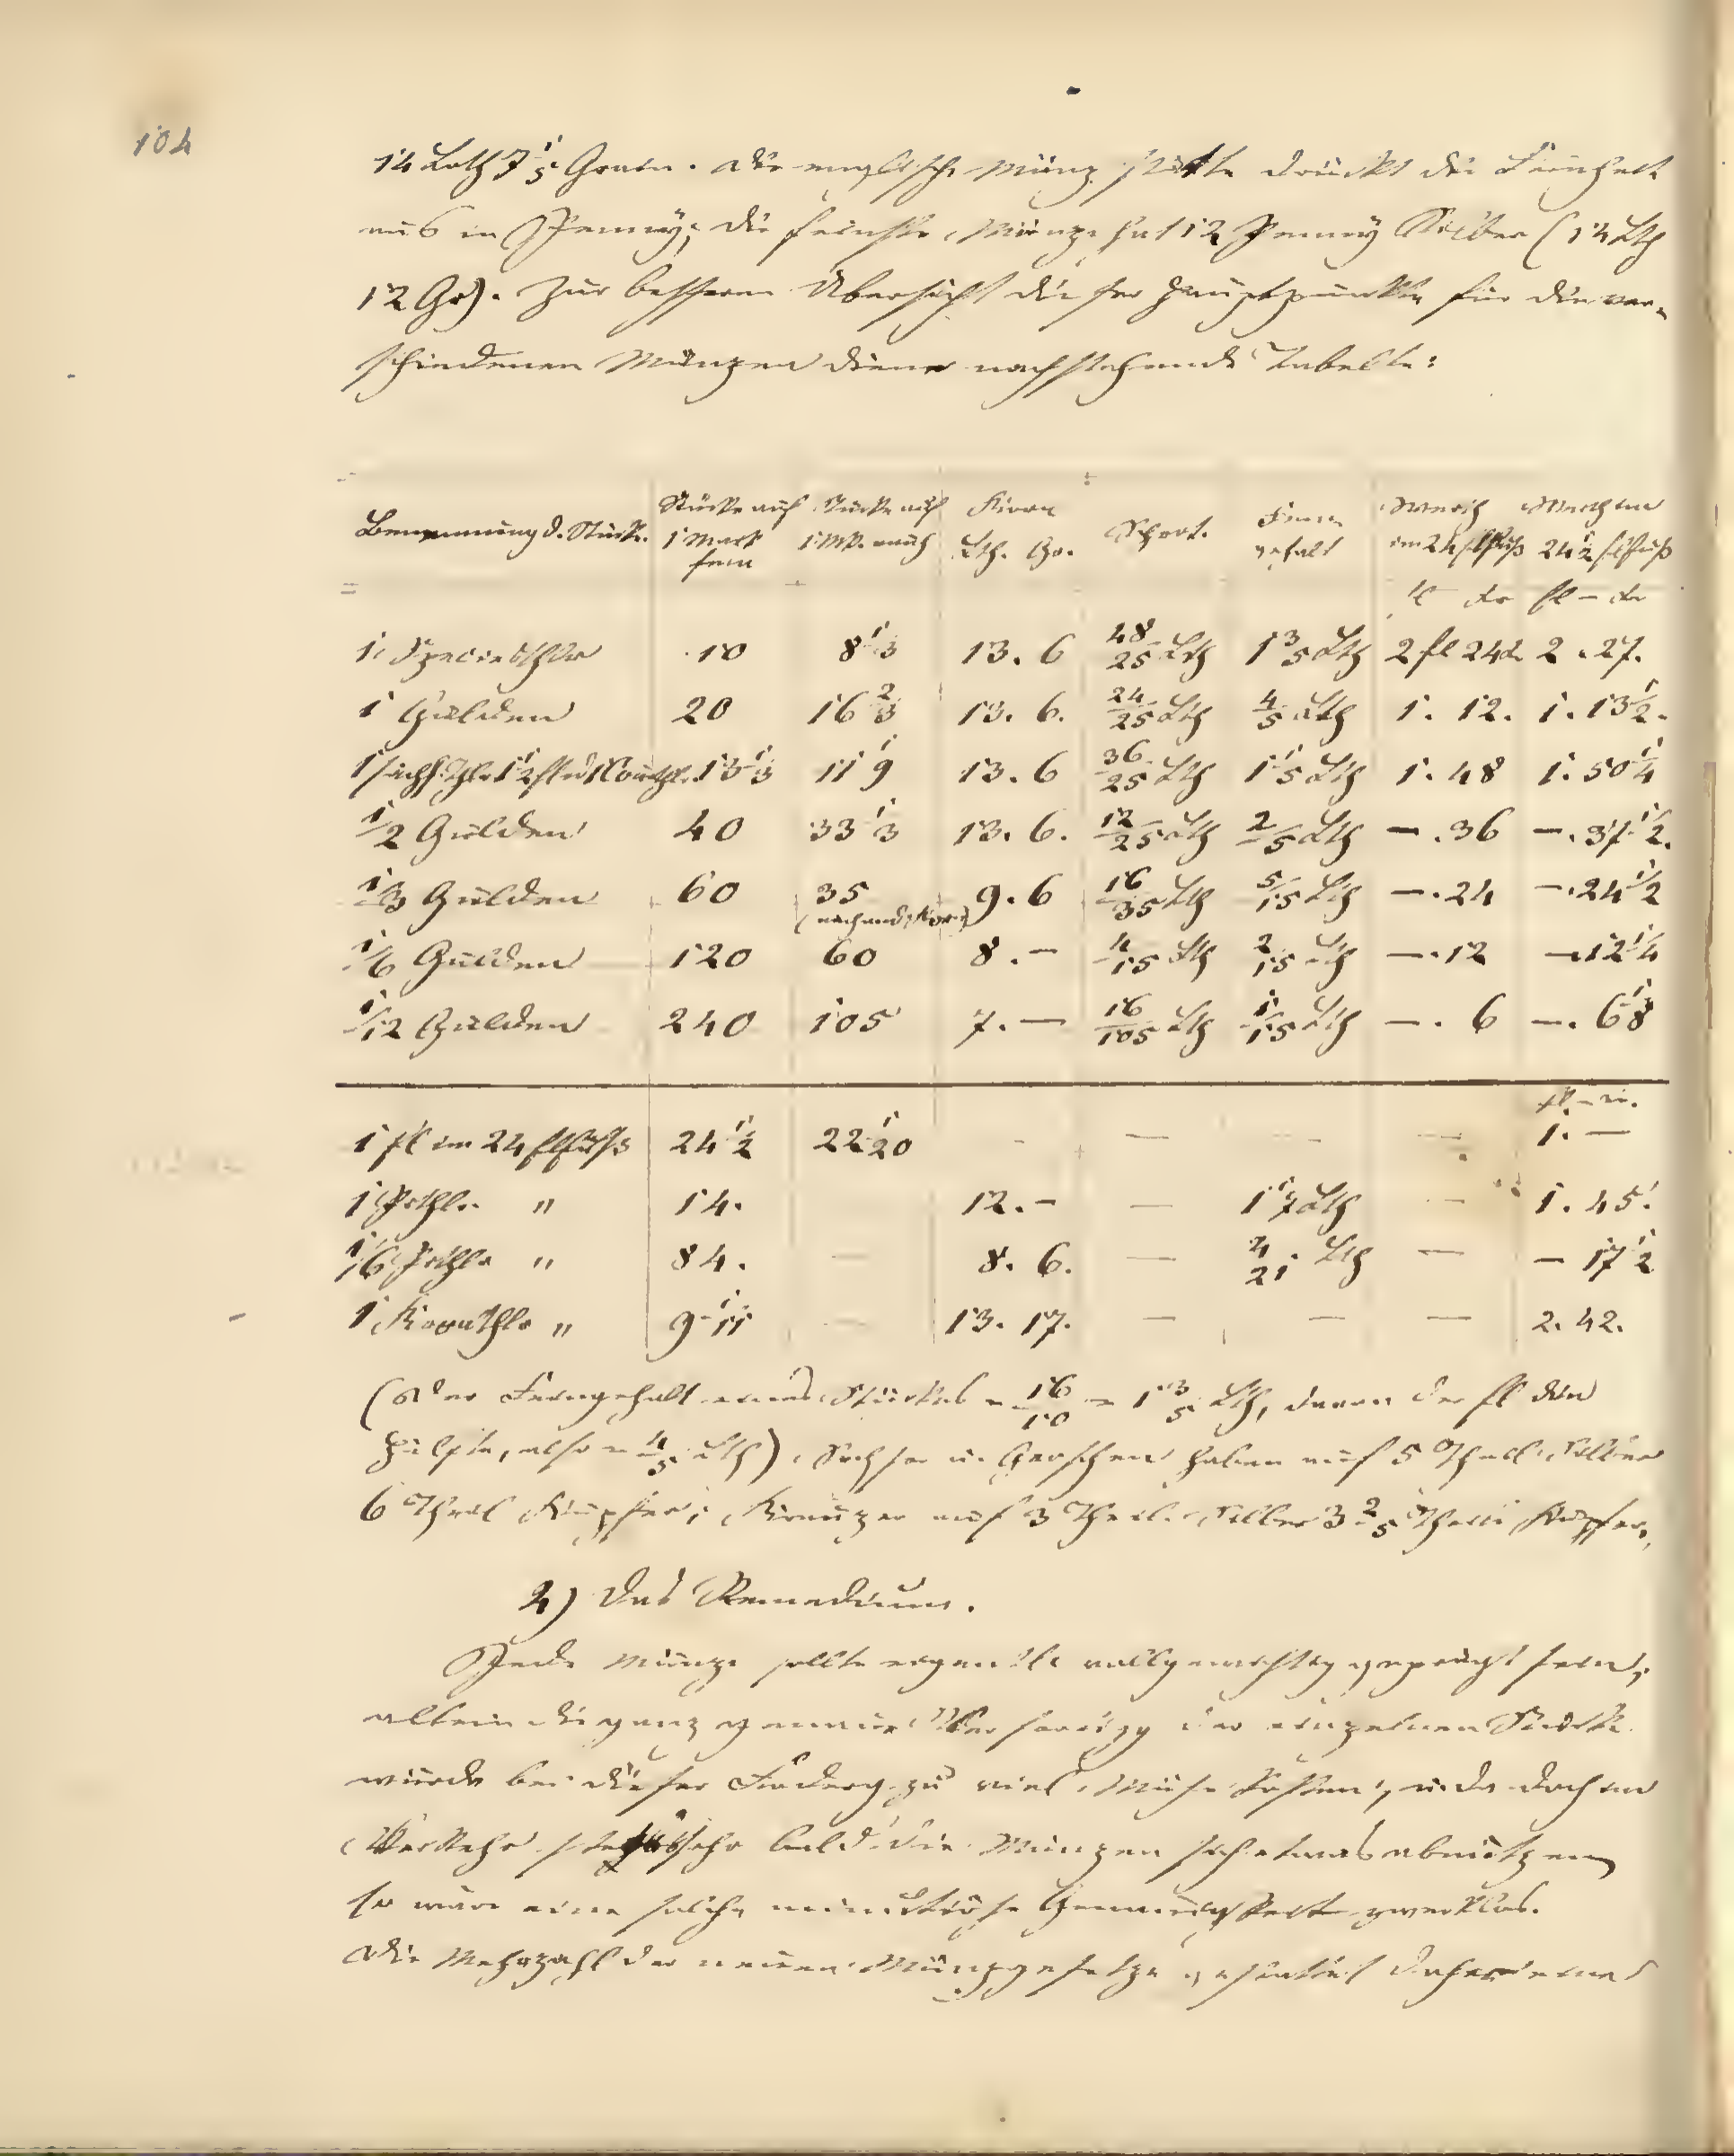 104
14 Loth 7 1/5 Grän. Die englische Münzstätte drückt die Feinheit
aus in Penny; die feinste Münze hat 12 Penny Silber (14 Lth
12 Gr). Zur bessern Übersicht dieser Hauptpunkte für die ver-
schiedenen Münzen diene nachstehende Tabelle:
Benennung d. Stücke. Stücke auf 1 Mark fein Stücke auf 1 Mk. rauh Korn Lth. Gr. Schrot. Feingehalt Werth im 24 flfuß Werth im 24 1/2 flfuß
fl xr fl – xr
1 Speciesthlr 10 8 1/3 13. 6 48/25 Lth 1 3/5 Lth 2 fl 24 x. 2. 27.
1 Gulden 20 16 2/3 13. 6. 24/25 Lth 4/5 Lth 1. 12. 1. 13 1/2.
1 sächs. Thlr 13 1/3 11 1/9 13. 6 36/25 Lth 1 1/5 Lth 1. 48 1. 50 1/4
1/2 Gulden 40 33 1/3 13. 6. 12/25 Lth 2/5 Lth –. 36 –. 37 1/2.
1/3 Gulden 60 35 9. 6 16/35 Lth 5/15 Lth –. 24 –. 24 1/2
(nach and. Korn)
1/6 Gulden 120 60 8. – 4/15 Lth 2/15 Lth –. 12 –. 12 1/4
1/12 Gulden 240 105 7. – 16/105 Lth 1/15 Lth –. 6 –. 6 1/8
fl. – xr.
1 fl im 24 flfuß 24 1/2 22 1/20 - — - — 1. —
1 Prthlr. " 14. 12. – — 1 1/7 Lth - 1. 45.
1/6 Prthlr " 84. — 8. 6. — 4/21 Lth — – 17 1/2
1 Kronthlr " 9 1/11 — 13. 17. — — — 2. 42.
(Der Feingehalt eines Stückes = 16/10 = 1 3/5 Lth, davon der fl die
Hälfte, also = 4/5 Lth). Sechser u. Groschen haben auf 5 Theile Silber
6 Theil Kupfer; Kreuzer auf 3 Theile Silber 3 2/5 Theile Kupfer.
2) Das Remedium.
Jede Münze sollte eigentl. vollgewichtig geprägt sein;
allein die ganz genaue der einzelnen Stücke
würde bei dieser Forderg. zu viel Mühe kosten, u. da doch im
Verkehr sehr bald die Münzen sich etwas abnützen,
so wäre eine solche minutiöse Genauigkeit zwecklos.
Die Mehrzahl der neuen Münzgesetze gestattet daher einen